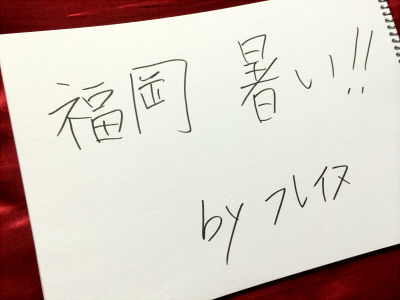 福岡 暑い!!
by フレイヌ